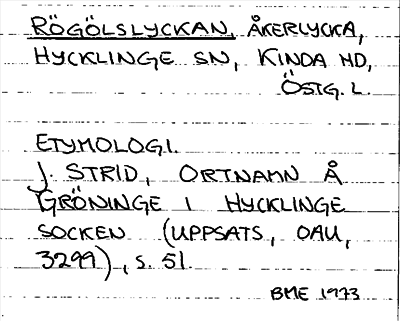 RÖGÖLSLYCKAN, ÅKERLYCKA,
HYCKLINGE SN, KINDA HD,
ÖSTG. L.
ETYMOLOGI.
J. STRID, ORTNAMN Å
GRÖNINGE I HYCKLINGE
SOCKEN (UPPSATS, OAU,
3299), S. 51
BME 1973